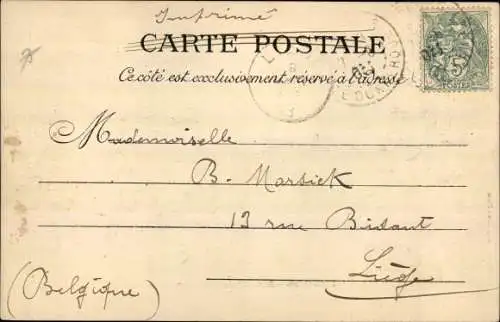 Imprimé
CARTE POSTALE
Ce côté est exclusivement réservé à l'adresse
Mademoiselle
B. Marsick
13 rue Bidaut
Liège
(Belgique)
5
POSTES